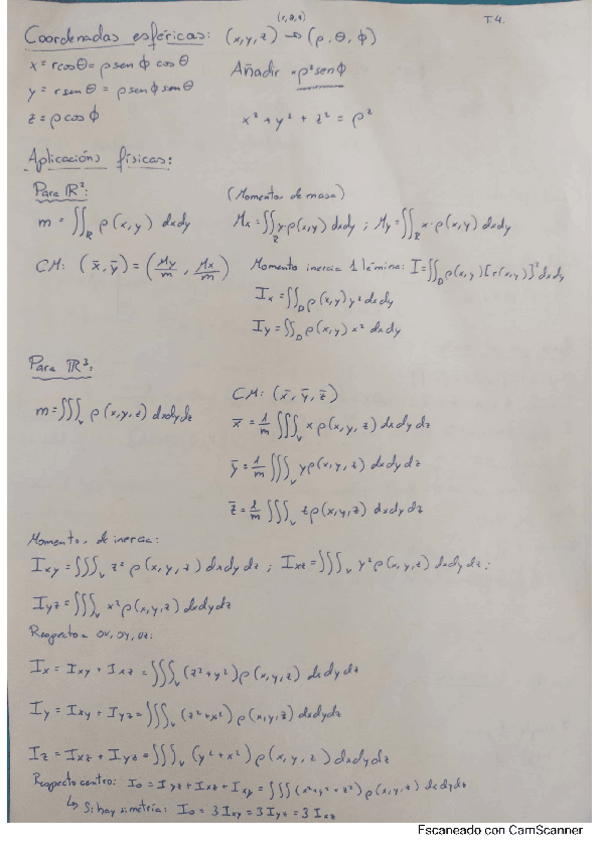 (r, θ, z)
T4.
Coordenadas esféricas: (x,y,z) → (ρ, θ, ϕ)
x = rcosθ = ρ sen ϕ cos θ
Añadir *ρ²senϕ
y = r sen θ = ρ sen ϕ sen θ
z = ρ cos ϕ
x² + y² + z² = ρ²
Aplicacións físicas:
Para ℝ²:
(Momentos de masa)
m = ∬_R ρ(x,y) dxdy
Mx = ∬_R y·ρ(x,y) dxdy ; My = ∬_R x·ρ(x,y) dxdy
CM: (x̄, ȳ) = (My/m , Mx/m)
Momento inercia 1 lámina: I = ∬_D ρ(x,y)[r(x,y)]² dxdy
Ix = ∬_D ρ(x,y) y² dxdy
Iy = ∬_D ρ(x,y) x² dxdy
Para ℝ³:
CM: (x̄, ȳ, z̄)
m = ∭_V ρ(x,y,z) dxdydz
x̄ = 1/m ∭_V x ρ(x,y,z) dxdydz
ȳ = 1/m ∭_V yρ(x,y,z) dxdydz
z̄ = 1/m ∭_V zρ(x,y,z) dxdydz
Momentos de inercia:
Ixy = ∭_V z² ρ(x,y,z) dxdydz ; Ixz = ∭_V y² ρ(x,y,z) dxdydz ;
Iyz = ∭_V x² ρ(x,y,z) dxdydz
Respecto a OX, OY, OZ:
Ix = Ixy + Ixz = ∭_V (z²+y²) ρ(x,y,z) dxdydz
Iy = Ixy + Iyz = ∭_V (z²+x²) ρ(x,y,z) dxdydz
Iz = Ixz + Iyz = ∭_V (y²+x²) ρ(x,y,z) dxdydz
Respecto centro: Io = Iyz + Ixz + Ixy = ∭ (x²+y²+z²) ρ(x,y,z) dxdydz
↳ Si hay simetría: Io = 3 Ixy = 3 Iyz = 3 Ixz
Escaneado con CamScanner